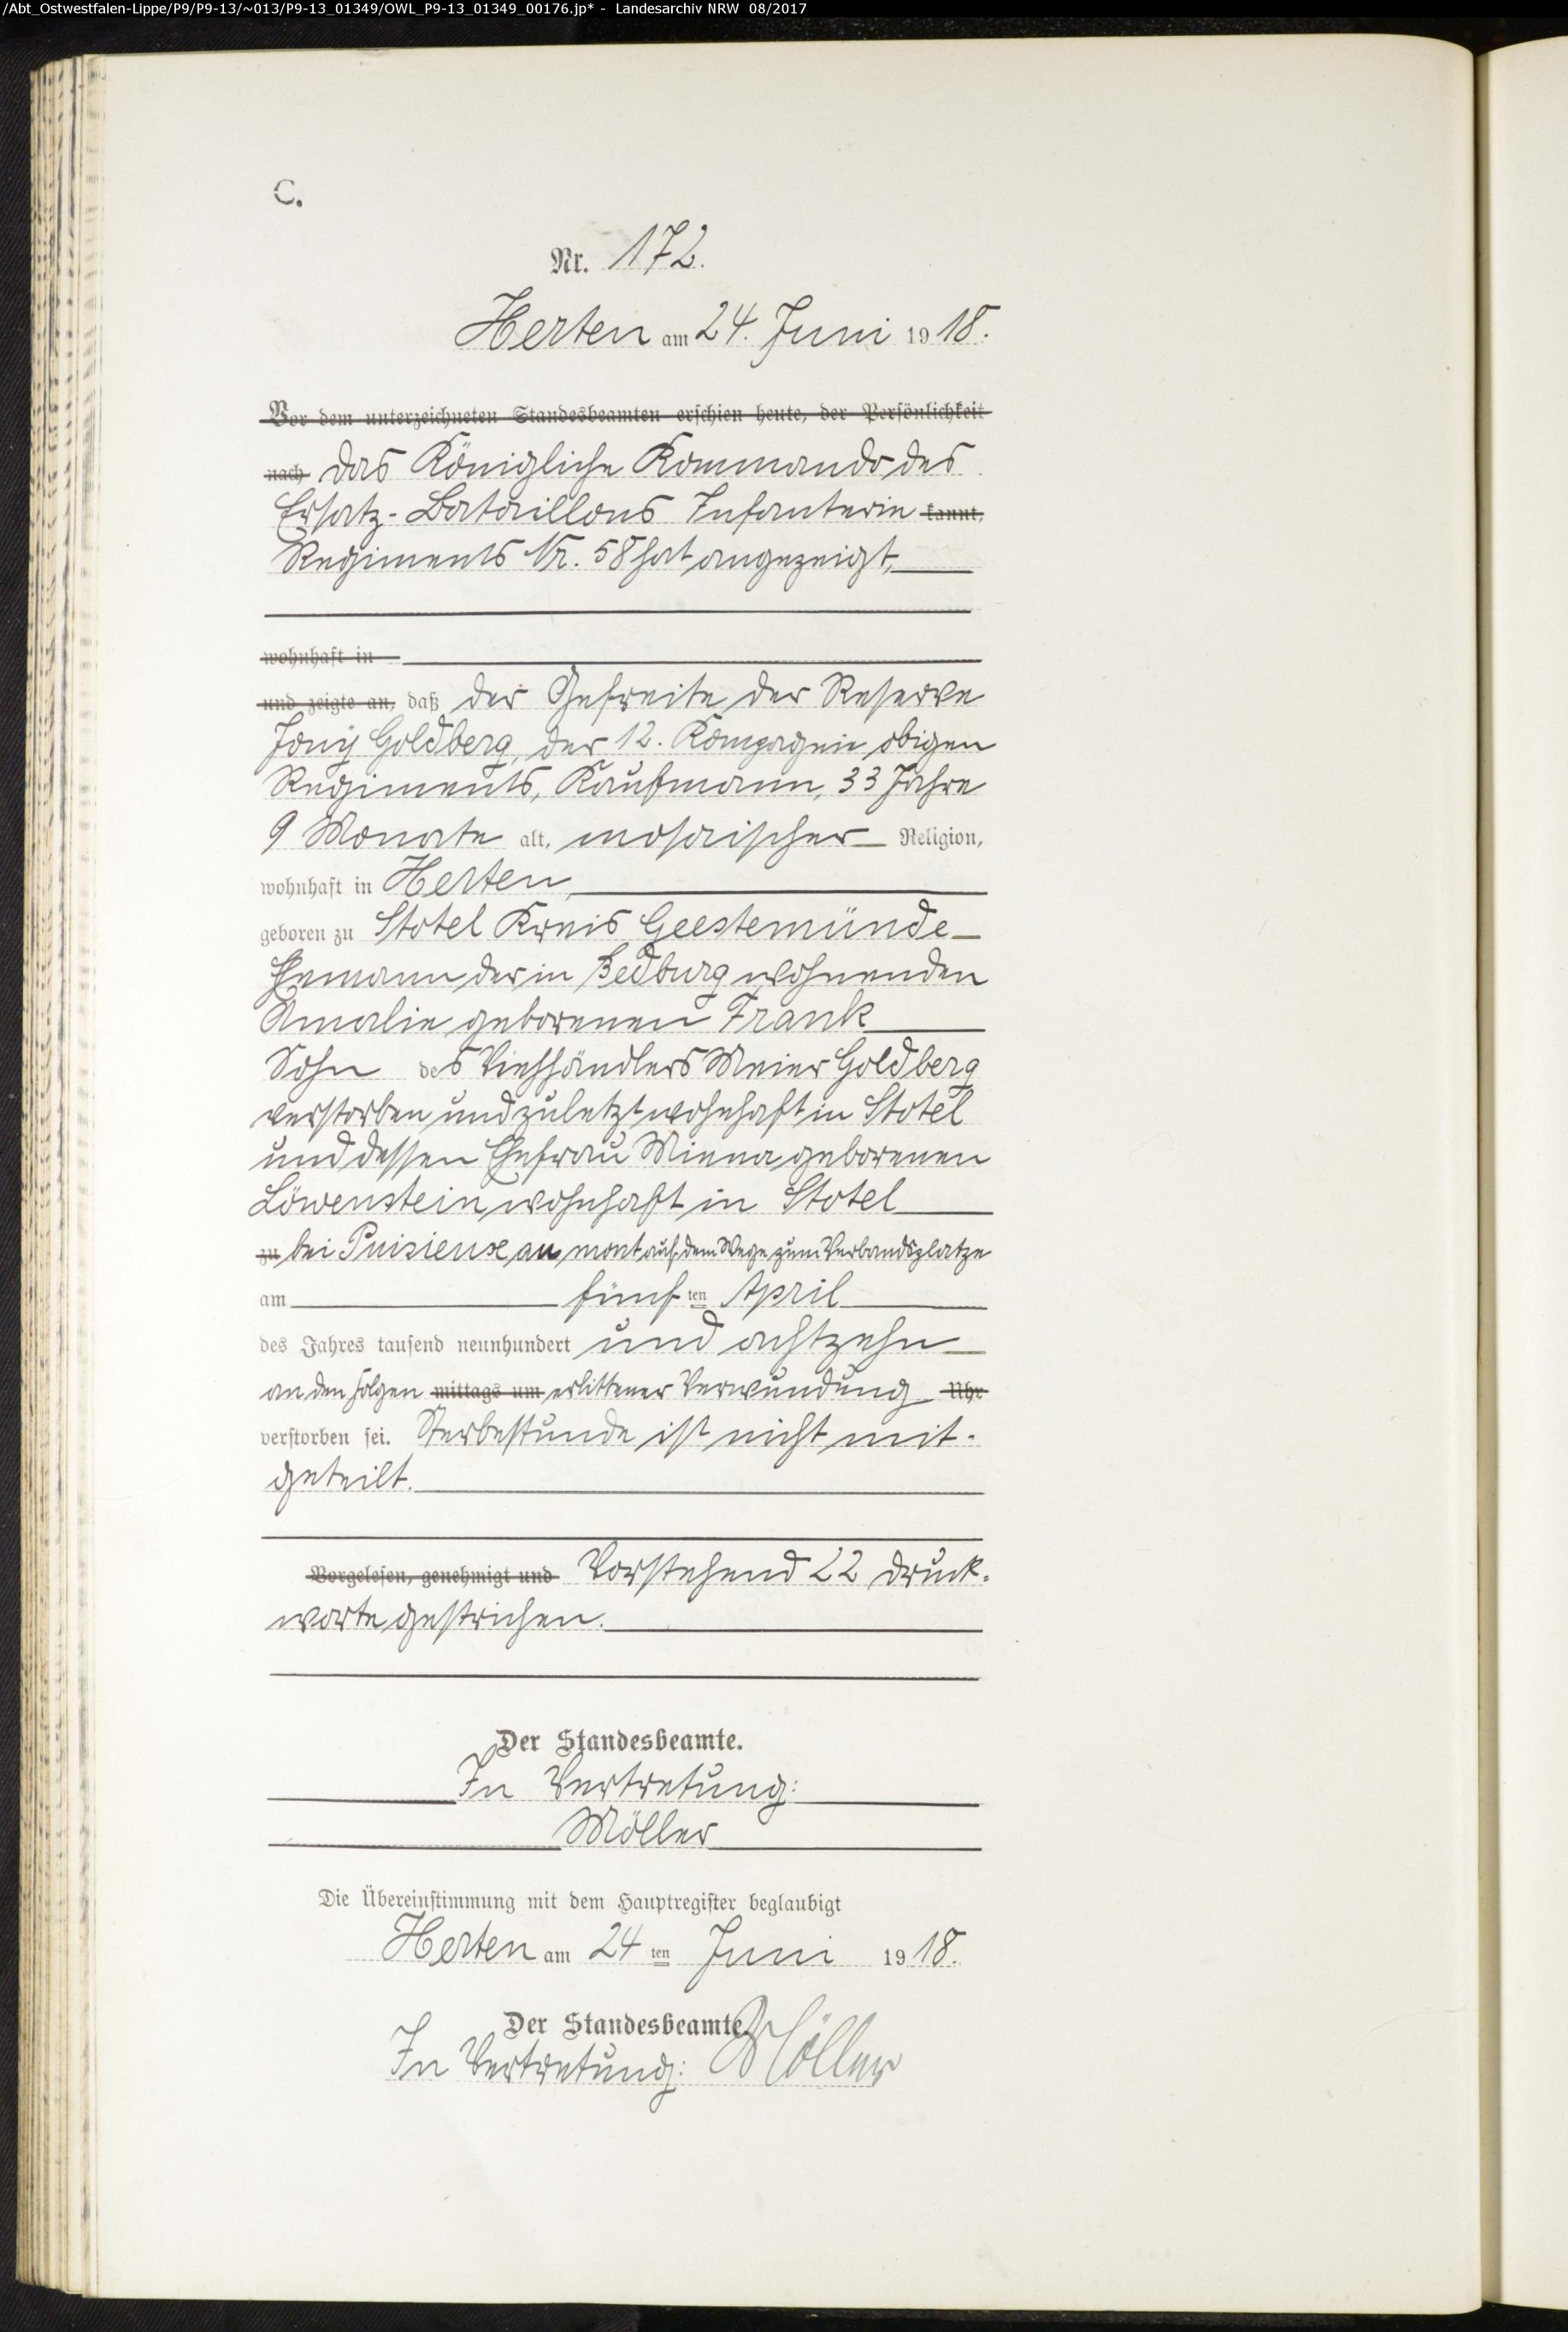 /Abt_Ostwestfalen-Lippe/P9/P9-13/~013/P9-13_01349/OWL_P9-13_01349_00176.jp* - Landesarchiv NRW 08/2017
C.
Nr. 172.
Herten am 24. Juni 1918.
Vor dem unterzeichneten Standesbeamten erschien heute, der Persönlichkeit
nach das Königliche Kommando des
Ersatz-Bataillons Infanterie kannt,
Regiments Nr. 58 hat angezeigt,
wohnhaft in
und zeigte an, daß der Gefreite der Reserve
Jonij Goldberg, der 12. Kompagnie obigen
Regiments, Kaufmann, 33 Jahre
9 Monate alt, mosaischer Religion,
wohnhaft in Herten,
geboren zu Stotel Kreis Geestemünde
Ehemann der in Bedburg wohnenden
Amalie geborenen Frank
Sohn des Viehhändlers Meier Goldberg
verstorben und zuletzt wohnhaft in Stotel
und dessen Ehefrau Minna geborenen
Löwenstein wohnhaft in Stotel
zu bei Puisieux au mont auf dem Wege zum Verbandsplatze
am fünften April
des Jahres tausend neunhundert und achtzehn
an den Folgen mittags um erlittener Verwundung Uhr
verstorben sei. Sterbestunde ist nicht mit-
geteilt.
Vorgelesen, genehmigt und Vorstehend 22 Druck-
worte gestrichen.
Der Standesbeamte.
In Vertretung:
Möller
Die Übereinstimmung mit dem Hauptregister beglaubigt
Herten am 24ten Juni 1918.
Der Standesbeamte.
In Vertretung: Möller